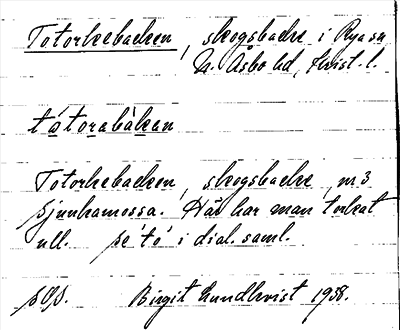 Totorkebacken, skogsbacke i Rya sn
N. Åsbo hd, Krist. l.
tǻtorabàkan
Totorkebacken, skogsbacke, nr 3
Sjunkamossa. Här har man torkat
ull. se 'tó' i dial. saml.
Birgit Lundkvist 1938.